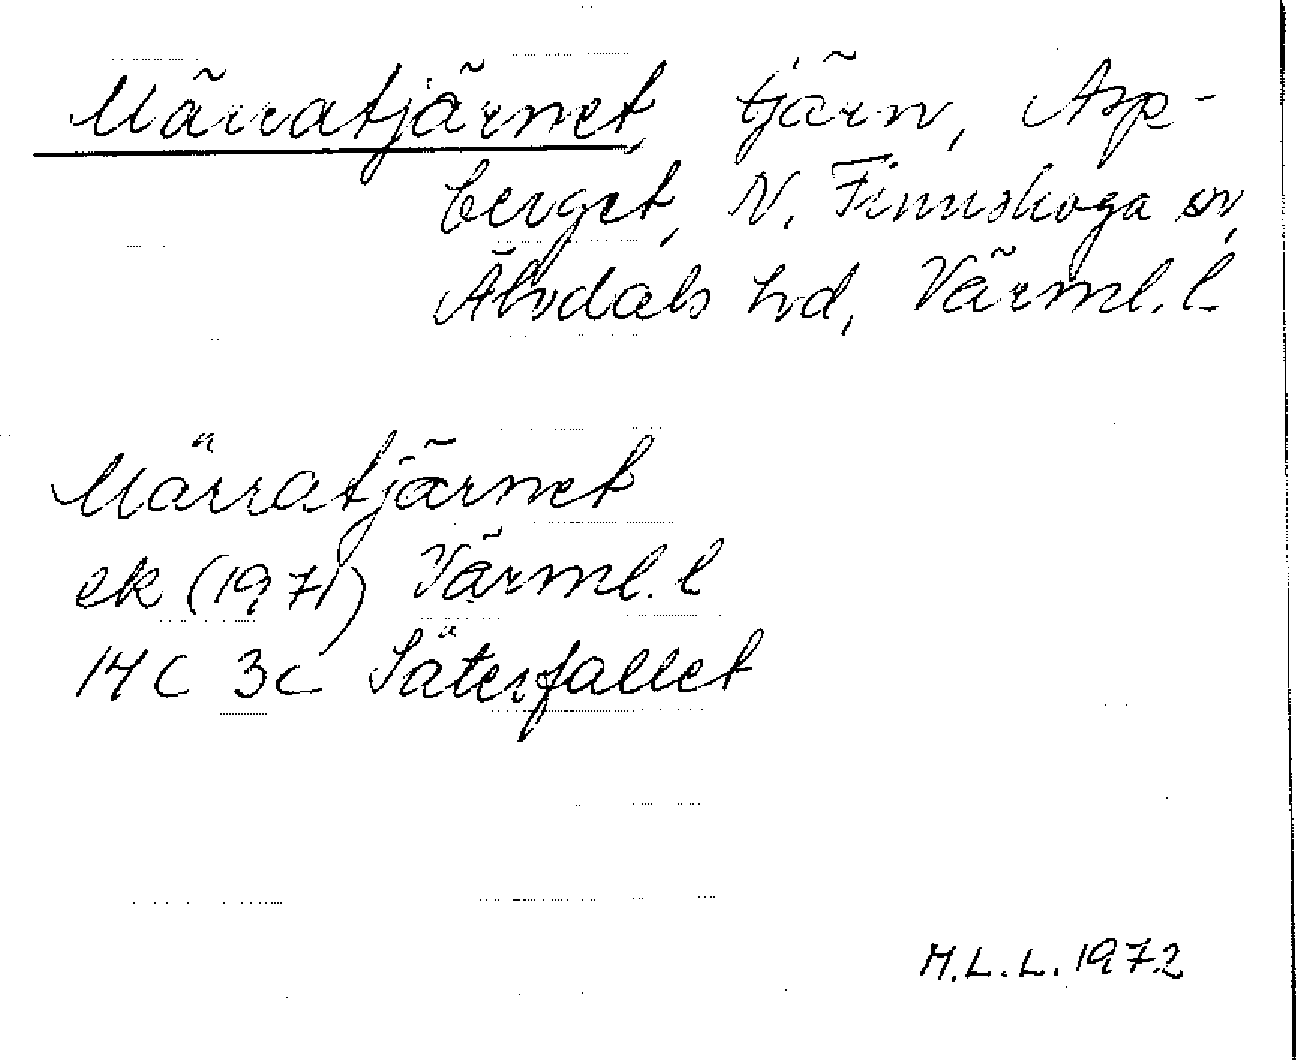 Märratjärnet, tjärn, Asp-
berget, N. Finnskoga sn,
Älvdals hd, Värml. l
Märratjärnet
ek (1971) Värml. l
14 C 3c Säterfallet
M.L.L. 1972